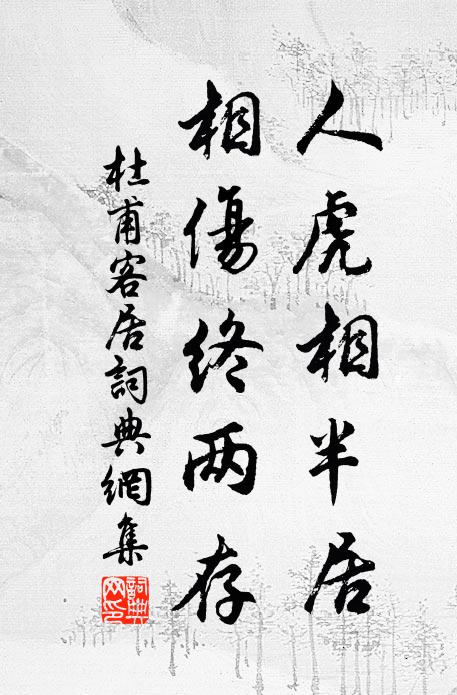 人虎相半居
相傷終两存
杜甫客居詞典網集
詞典網印